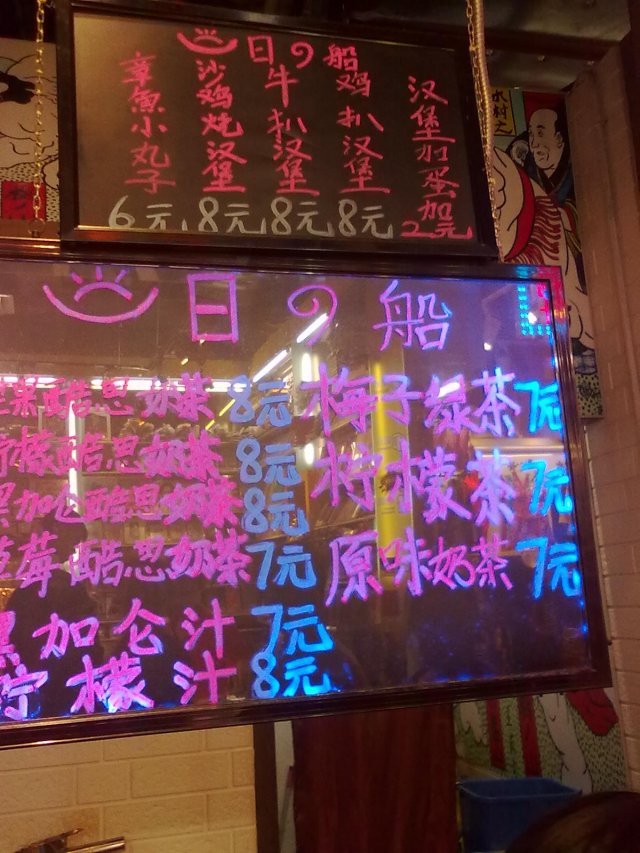 日の船
章魚小丸子 6元
沙鸡炖汉堡 8元
牛扒汉堡 8元
鸡扒汉堡 8元
汉堡加蛋加2元
日の船
果酷思奶茶 8元
柠檬酷思奶茶 8元
黑加仑酷思奶茶 8元
草莓酷思奶茶 7元
黑加仑汁 7元
柠檬汁 8元
梅子绿茶 7元
柠檬茶 7元
原味奶茶 7元